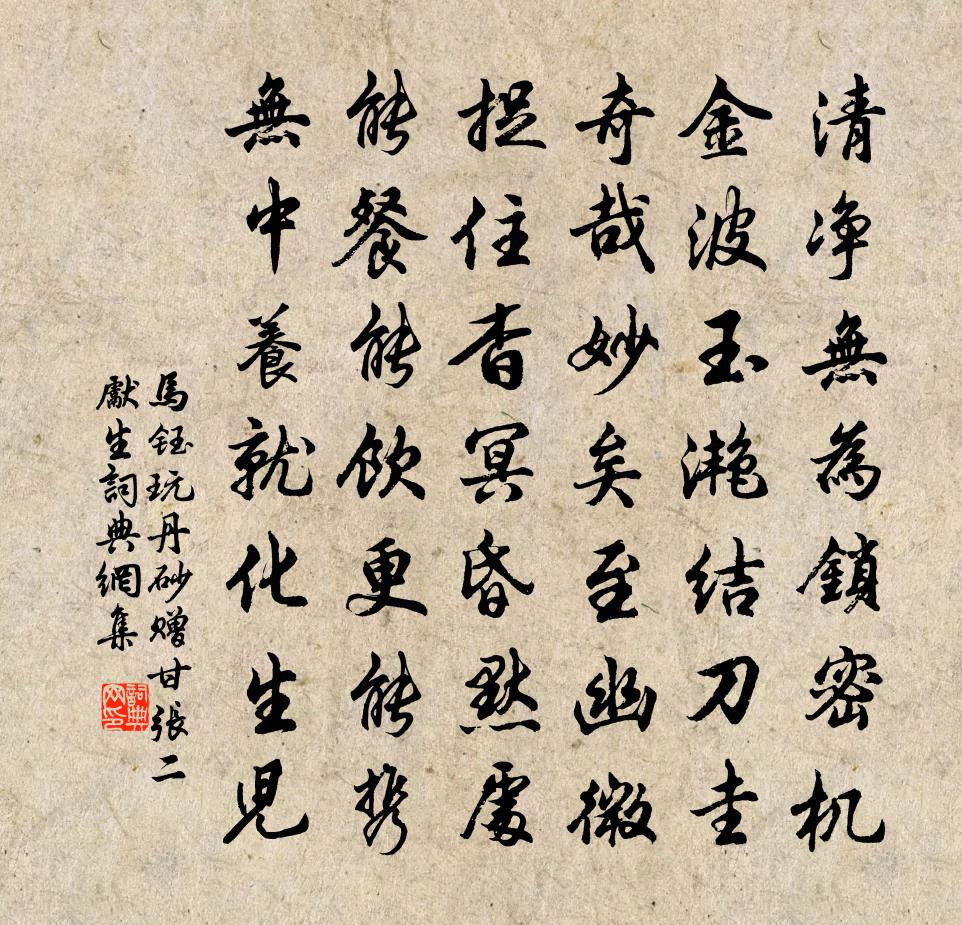 清净無為鎖密机
金波玉滟结刀圭
奇哉妙矣至幽微
捉住杳冥昏默處
能餐能飲更能携
無中養就化生児
馬钰玩丹砂赠甘張二
獻生詞典網集
詞典网印